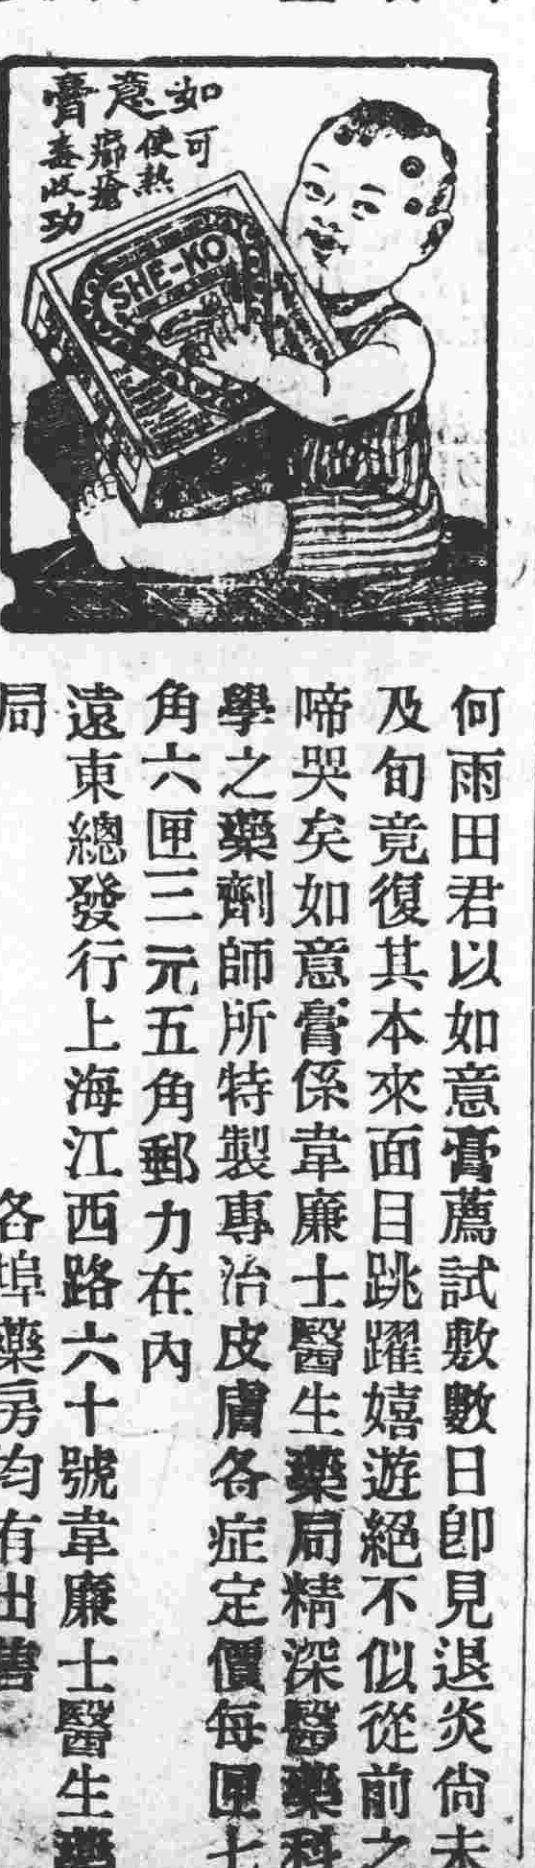 如意膏
可
使熱
癤瘡
奏收功
SHE-KO
何雨田君以如意膏薦試敷數日卽見退炎尙未
及旬竟復其本來面目跳躍嬉遊絕不似從前之
啼哭矣如意膏係韋廉士醫生藥局精深醫藥科
學之藥劑師所特製專治皮膚各症定價每匣七
角六匣三元五角郵力在內
遠東總發行上海江西路六十號韋廉士醫生藥
局
各埠藥房均有出售